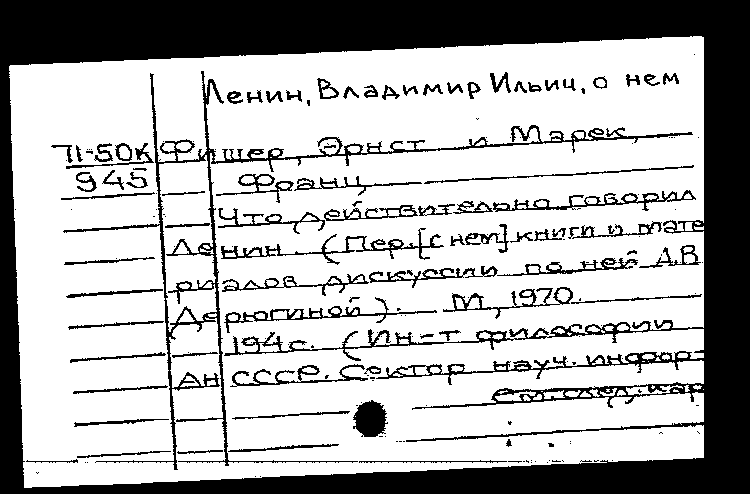 Ленин, Владимир Ильич, о нем
71-50К Фишер, Эрнст и Марек,
945 Франц
Что действительно говорил
Ленин. (Пер. [с нем] книги и мате
риалов дискуссии по ней А.В
Дерюгиной). М, 1970.
194 с. (Ин-т философии
АН СССР. Сектор науч. инфор-
См. след. кар